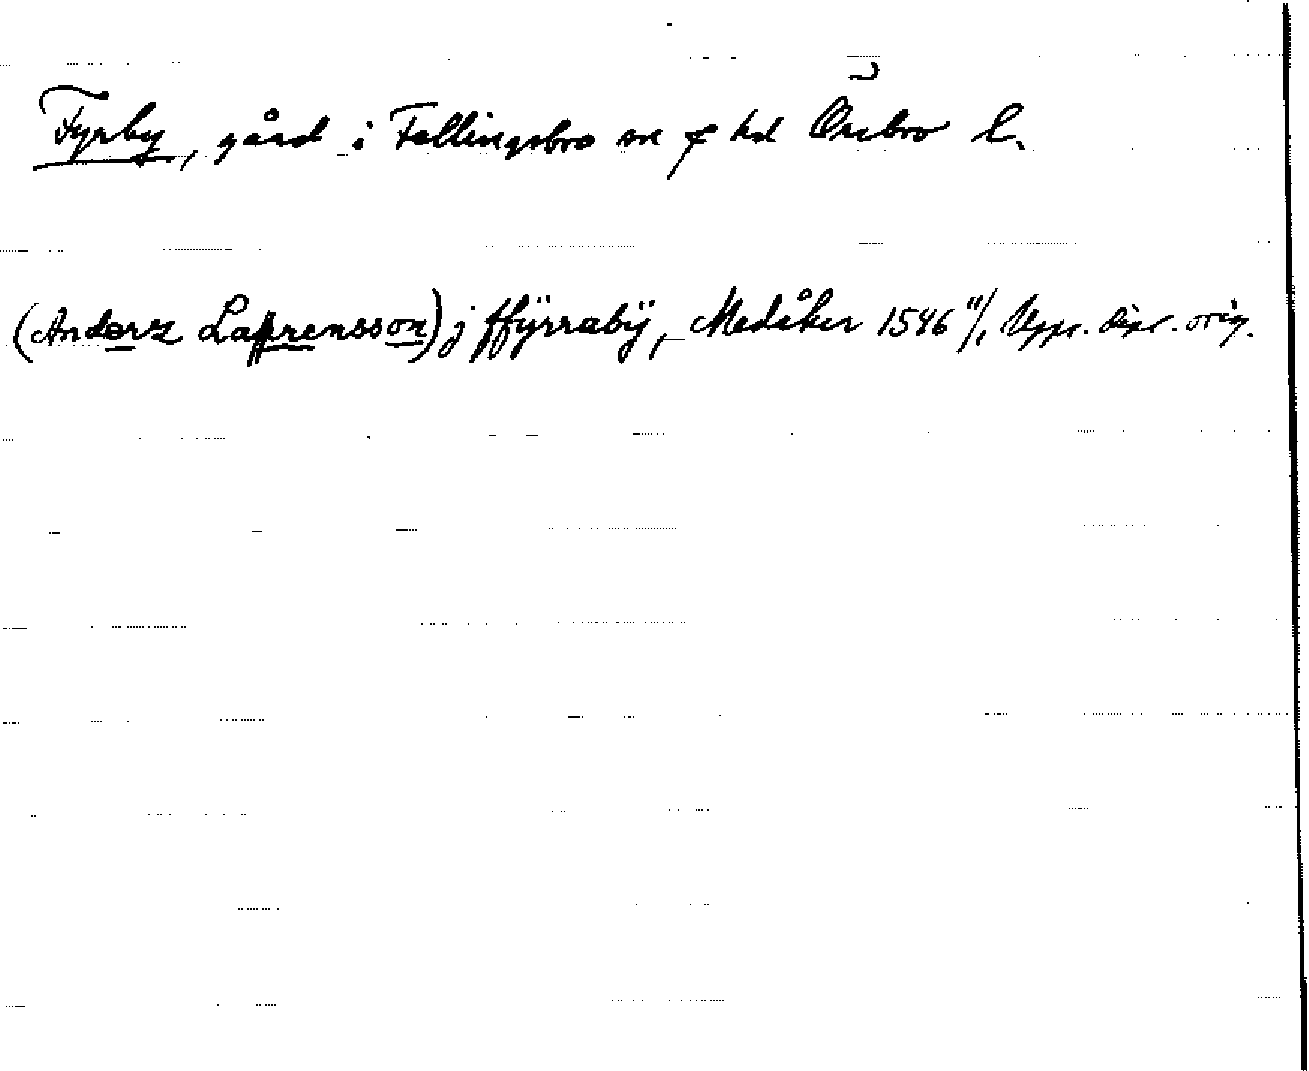 Fyrby, gård i Fellingsbro sn o hd Örebro l.
(Anderz Laffrensson) j ffÿrrabÿ, Medåker 1546 11/1 Upps. dipl. orig.